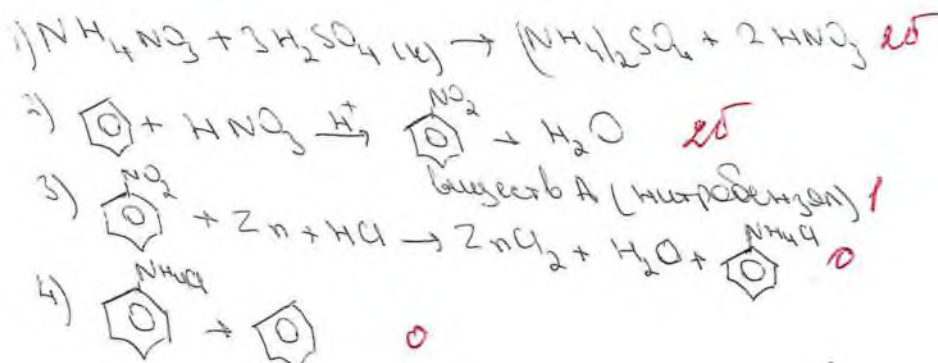 1) NH4NO3 + 3H2SO4 (к) → (NH4)2SO4 + 2HNO3 2б
2) + HNO3 H+ → NO2 + H2O 2б
веществ А (нитробензол) 1
3) NO2 + Zn + HCl → ZnCl2 + H2O + NH4Cl 0
4) NH4Cl → 0